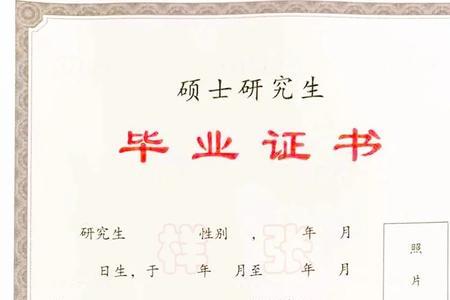 硕士研究生
毕业证书
研究生 性别 , 年 月
日生,于 年 月至 年 月
样张
照
片